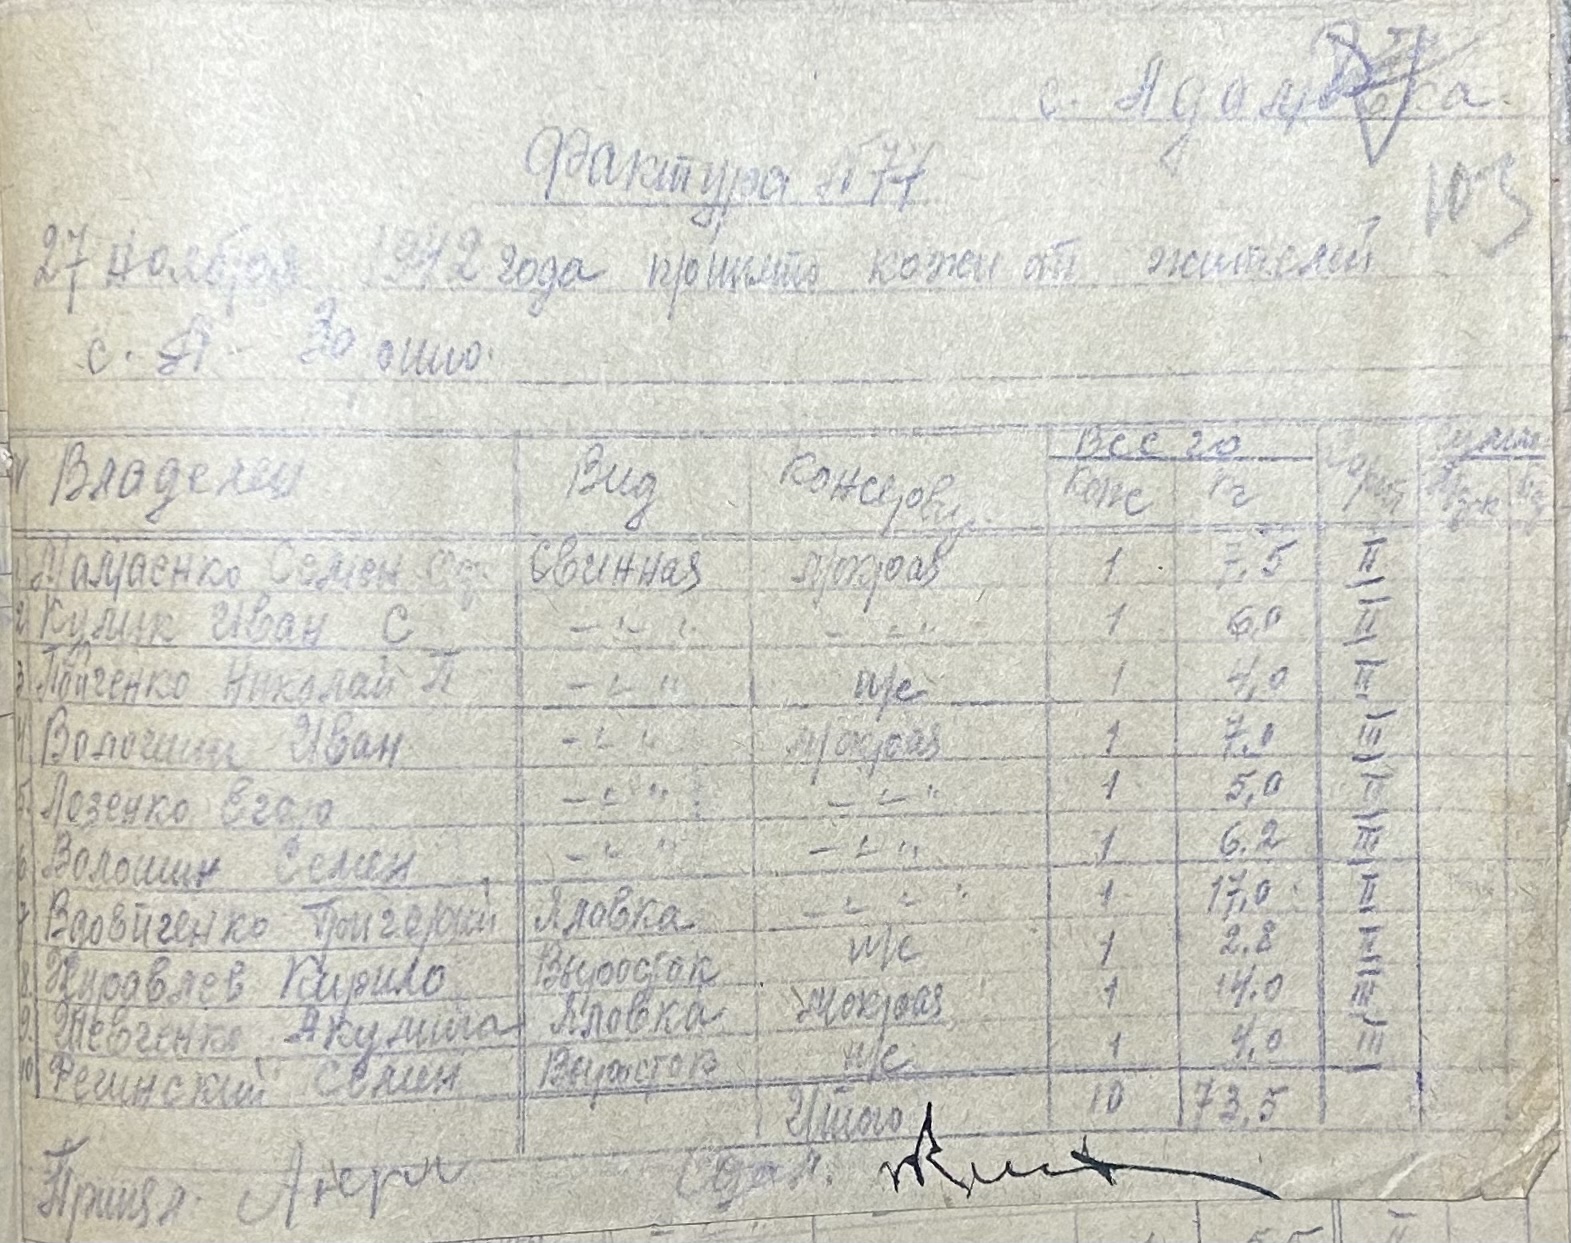 с. Адам
Фактура № 77
103
27 ноября 1942 года принято кожи от жителей
с. А-
Всего
N Владелец Вид Консервир. Кож кг Сорт
Мамаенко Семен Свинная мокрая 1 7,5 II
2 Кулик Иван С -"- -"- 1 6,0 II
3 Николай П -"- п/с 1 4,0 II
4 Волошин Иван -"- мокрая 1 7,0 III
5 Лозенко Егор -"- -"- 1 5,0 II
6 Волошин Семен -"- -"- 1 6.2 III
7 Вдовиченко Григорий Яловка -"- 1 17,0 II
8 Журавлев Кирило Выросток п/с 1 2.8 II
9. Шевченко Акулина Яловка мокрая 1 14.0 III
10 Семен Выросток п/с 1 4,0 III
Итого 10 73,5
Принял. Сдал.